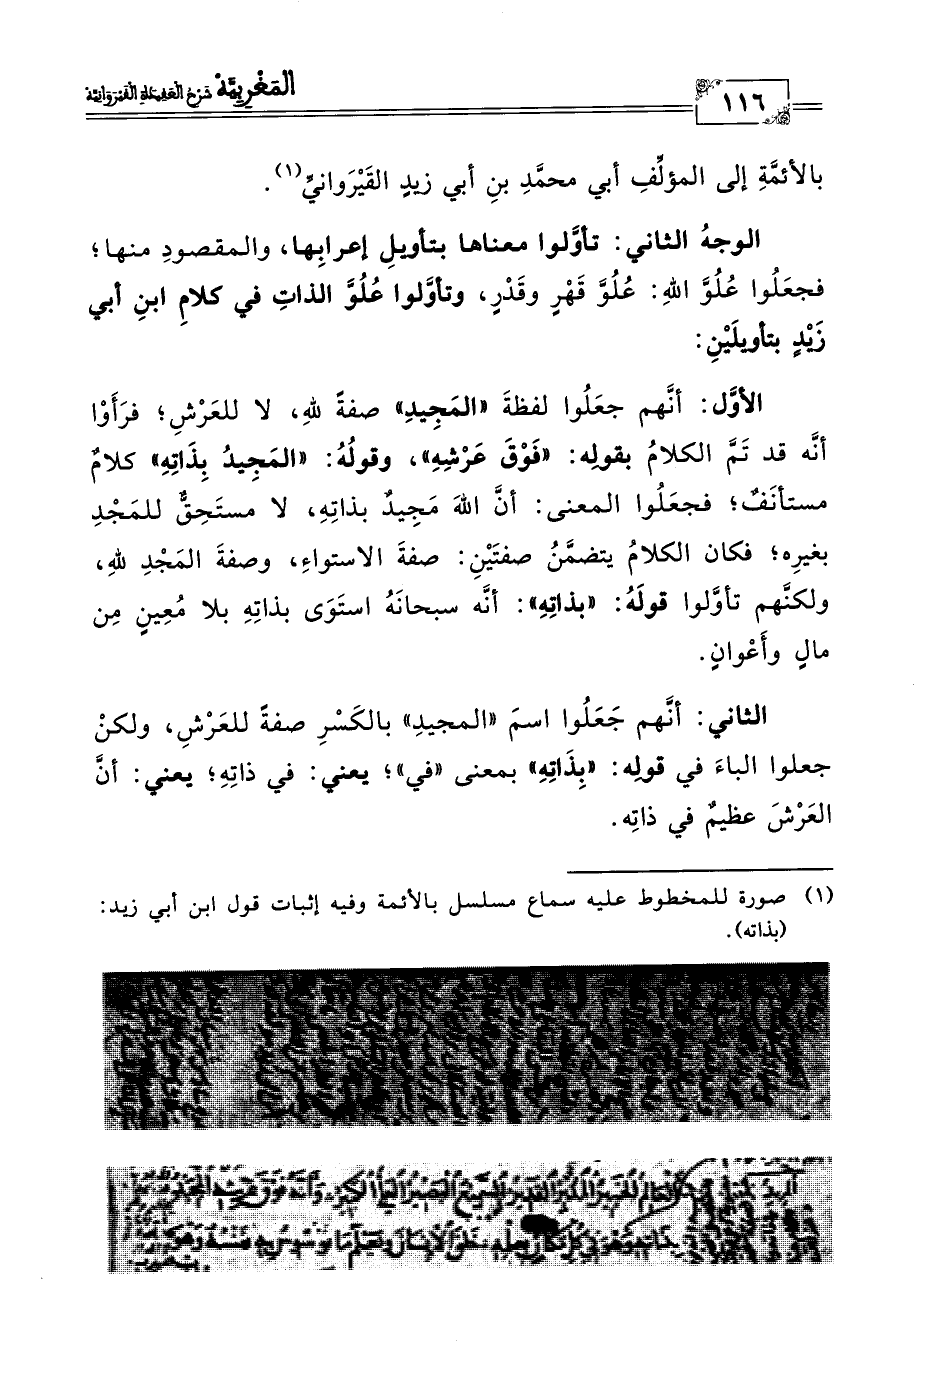 المَغْرِبِيَّة شَرْحُ العَقِيدَةِ القَيْرَوَانِيَّة
١١٦
بالأئمَّةِ إلى المؤلِّفِ أبي محمَّدِ بنِ أبي زيدٍ القَيْرَوانيِّ(١).
الوجهُ الثاني: تأوَّلوا معناها بتأويلِ إعرابِها، والمقصودِ منها؛
فجعَلُوا عُلُوَّ اللهِ: عُلُوَّ قَهْرٍ وقَدْرٍ، وتأوَّلوا عُلُوَّ الذاتِ في كلامِ ابنِ أبي
زَيْدٍ بتأويلَيْنِ:
الأوَّل: أنَّهم جعَلُوا لفظةَ «المَجِيدِ» صفةً للهِ، لا للعَرْشِ؛ فرَأَوْا
أنَّه قد تَمَّ الكلامُ بقولِه: «فَوْقَ عَرْشِهِ»، وقولُهُ: «المَجِيدُ بِذَاتِهِ» كلامٌ
مستأنَفٌ؛ فجعَلُوا المعنى: أنَّ اللهَ مَجِيدٌ بذاتِهِ، لا مستَحِقٌّ للمَجْدِ
بغيرِه؛ فكان الكلامُ يتضمَّنُ صفتَيْنِ: صفةَ الاستواءِ، وصفةَ المَجْدِ للهِ،
ولكنَّهم تأوَّلوا قولَهُ: «بذاتِهِ»: أنَّه سبحانَهُ استَوَى بذاتِهِ بلا مُعِينٍ مِن
مالٍ وأَعْوانٍ.
الثاني: أنَّهم جَعَلُوا اسمَ «المجيدِ» بالكَسْرِ صفةً للعَرْشِ، ولكنْ
جعلوا الباءَ في قولِه: «بِذَاتِهِ» بمعنى «في»؛ يعني: في ذاتِهِ؛ يعني: أنَّ
العَرْشَ عظيمٌ في ذاتِه.
(١) صورة للمخطوط عليه سماع مسلسل بالأئمة وفيه إثبات قول ابن أبي زيد:
(بذاته).
العالم الخبير المدبر القدير السميع البصير العلي الكبير وأنه فوق عرشه المجيد
بذاته وهو في كل مكان بعلمه خلق الإنسان ويعلم ما توسوس به نفسه وهو